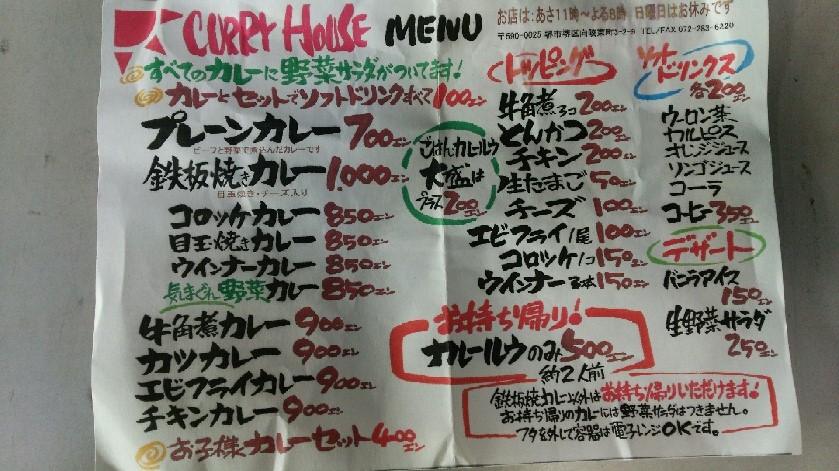 CURRY HOUSE MENU
お店は:あさ11時〜よる8時 日曜日はお休みです
〒590-0025 堺市堺区向陵東町3-2-6 TEL/FAX 072-283-6220
すべてのカレーに野菜サラダがついてます!
カレーとセットでソフトドリンクすべて100エン
プレーンカレー 700エン
ビーフと野菜で煮込んだカレーです
鉄板焼きカレー 1,000エン
目玉焼き・チーズ入り
コロッケカレー 850エン
目玉焼きカレー 850エン
ウインナーカレー 850エン
気まぐれ野菜カレー 850エン
牛角煮カレー 900エン
カツカレー 900エン
エビフライカレー 900エン
チキンカレー 900エン
お子様カレーセット 400エン
ごはんカレールウ
大盛は
プラス200エン
トッピング
牛角煮3コ 200エン
とんかつ 200エン
チキン 200エン
生たまご 50エン
チーズ 100エン
エビフライ1尾 100エン
コロッケ1コ 150エン
ウインナー3本 150エン
ソフトドリンクス
各200エン
ウーロン茶
カルピス
オレンジジュース
リンゴジュース
コーラ
コーヒー 350エン
デザート
バニラアイス
150エン
生野菜サラダ
250エン
お持ち帰り!
カレールウのみ500エン
約2人前
鉄板焼カレー以外はお持ち帰りいただけます!
お持ち帰りのカレーには野菜サラダはつきません。
フタを外して容器は電子レンジOKです。